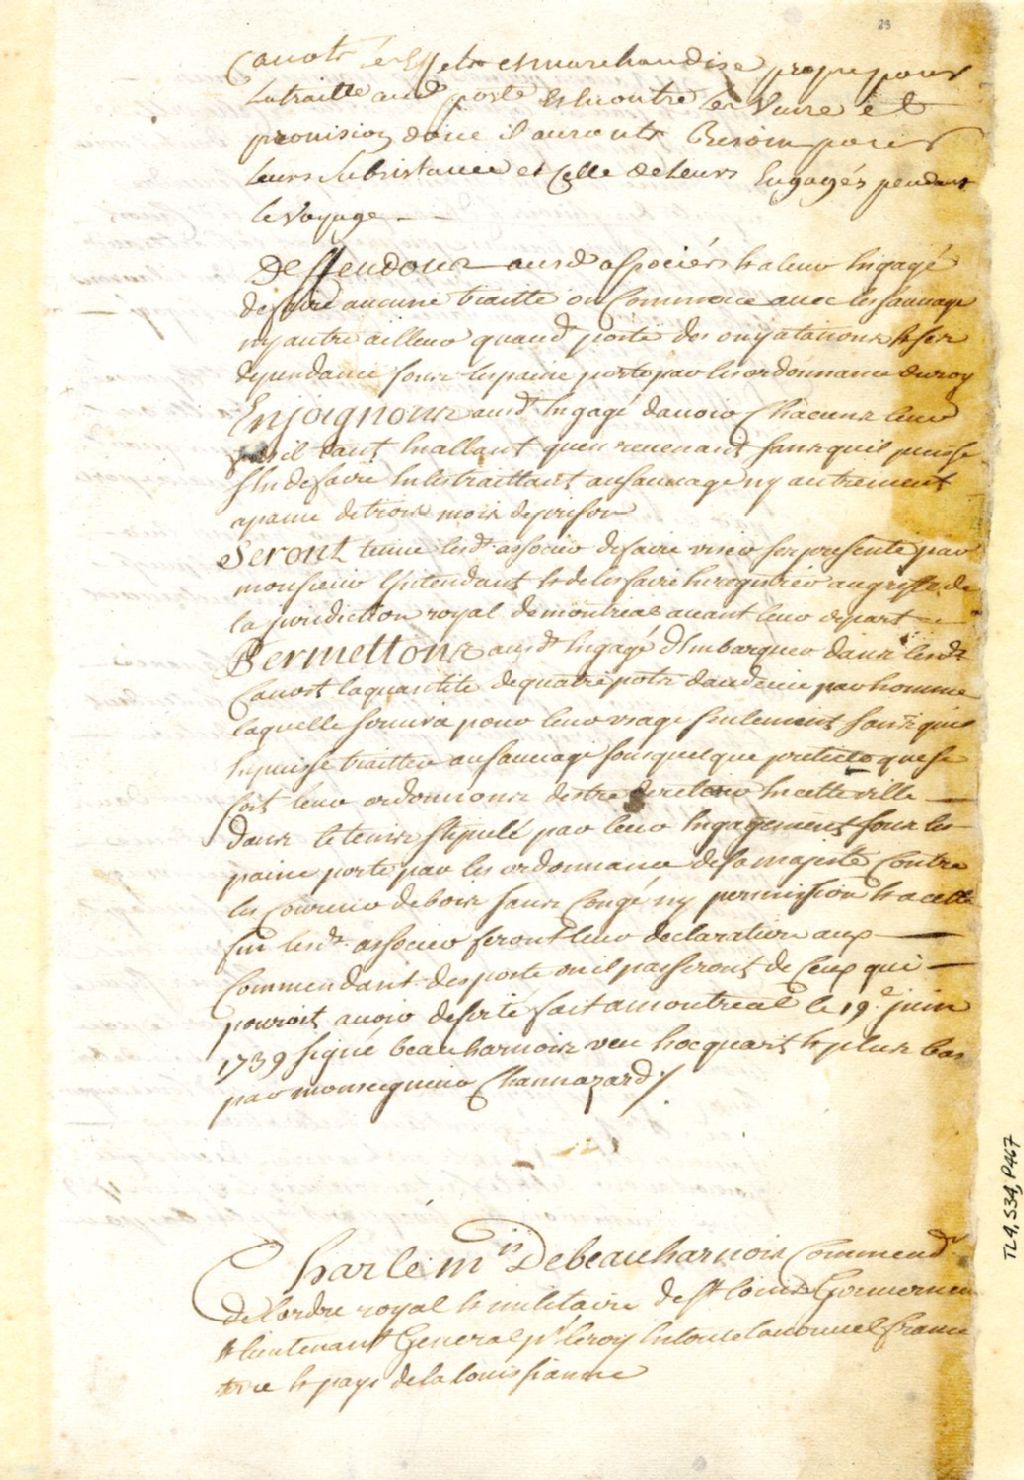 23
Canots les Effets et marchandise propre pour
la traitte aud. poste Et en outre les vivre et
provision donc il auront Besoin pour
leurs subsistance et Celle de leurs Engagés pendant
le voyage - -
Deffendons ausd associés & a leur Engagé
de faire aucune traitte ou Commerce avec les sauvage
ny autre ailleur quaud poste des ouyatanons & ses
dependance sous les paine porte par les ordonnance du roy
Enjoignons ausd Engagé davoir Chacuns leur
fusil tant En allant quen revenant sans quil puisse
sen defaire En les traittant au sauvage ny autrement
a paine de trois mois de prison
Seront tenue lesd. associer de faire viser ses presente par
monsieur lintendant & de les faire Enregistrer au greffe de
la juridiction royal de montreal avant leur depart
Permettons ausd. Engagé dEmbarquer dans lesd.
Canost la quantite de quatre pots daudevie par homme
laquelle servira pour leur usage seulement sans quil
En puisse traitter au sauvage sous quelque pretexte que se
soit leur ordonnons destre de retour En cette ville
dans le tems stipulé par leur Engagement sous les
paine porte par les ordonnance de sa majesté Contre
les Coureur de bois sans Congé ny permission & a cette
fin lesd. associer feront leur declaration aux
Commendant des poste ou il passeront de Ceux qui
pouroit avoir deserté fait a montreal le 19.e juin
1739 signé beauharnois veu hocquart & plus bas
par monseigneur Chamazard /.
Charle m.is De beauharnois Commend.r
de lordre royal & militaire de st louis Gouverneur
& lieutenant General p.r le roy En toute la nouvel france
terre & pays de la louissianne
TL4, S34, P467